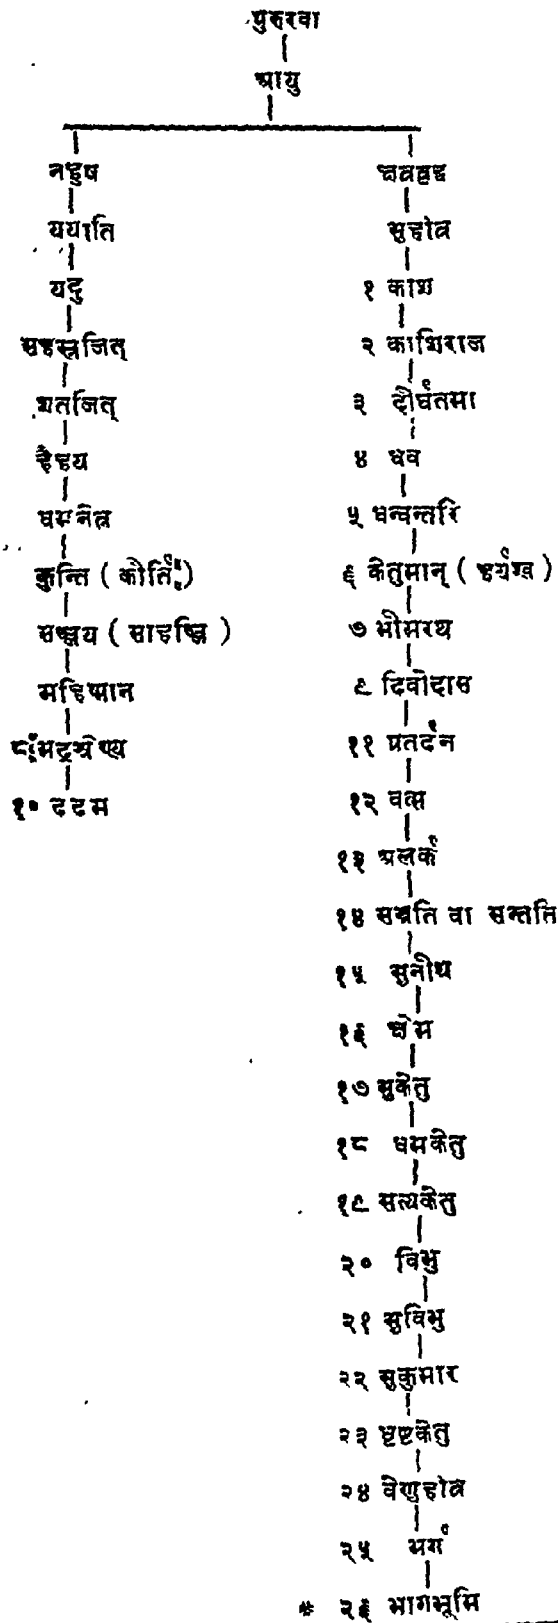 पुरुरवा
आयु
नहुष
ययाति
यदु
सहस्रजित्
शतजित्
हैहय
धमनेत्र
कुन्ति ( कौर्ति )
सञ्जय ( साहञ्जि )
महिष्मान
८ भद्रश्रेण्य
१० ददम
क्षत्रवृद्ध
सुहोत्र
१ काश
२ काशिराज
३ दीर्घतमा
४ धव
५ धन्वन्तरि
६ केतुमान् ( हर्यश्व )
७ भीमरथ
९ दिवोदास
११ प्रतर्दन
१२ वत्स
१३ अलर्क
१४ सन्नति वा सन्तति
१५ सुनीथ
१६ क्षेम
१७ सुकेतु
१८ धमकेतु
१९ सत्यकेतु
२० विभु
२१ सुविभु
२२ सुकुमार
२३ धृष्टकेतु
२४ वेणुहोत्र
२५ भर्ग
* २६ भागभूमि